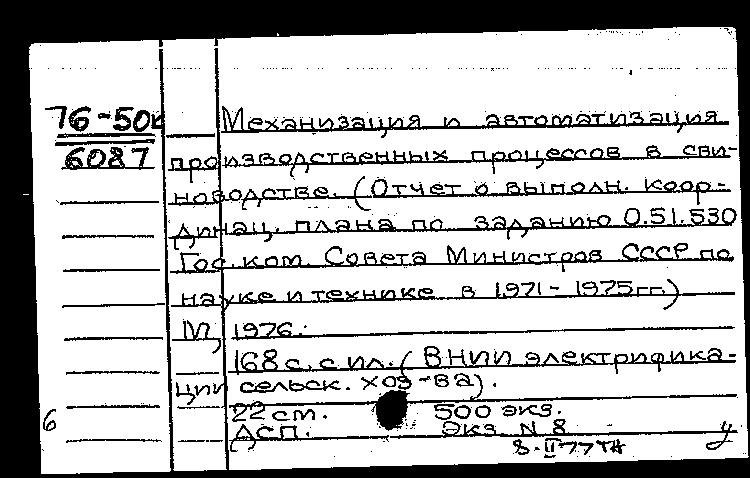 76-50к Механизация и автоматизация
6087 производственных процессов в сви-
новодстве. (Отчет о выполн. коор-
динац. плана по заданию 0.51.530
Гос. ком. Совета Министров СССР по
науке и технике в 1971-1975гг.)
М, 1976.
168 с. с ил. (ВНИИ электрифика-
ции сельск. хоз-ва).
22 см. 500 экз.
6 ДСП. экз. N 8
8.II 77